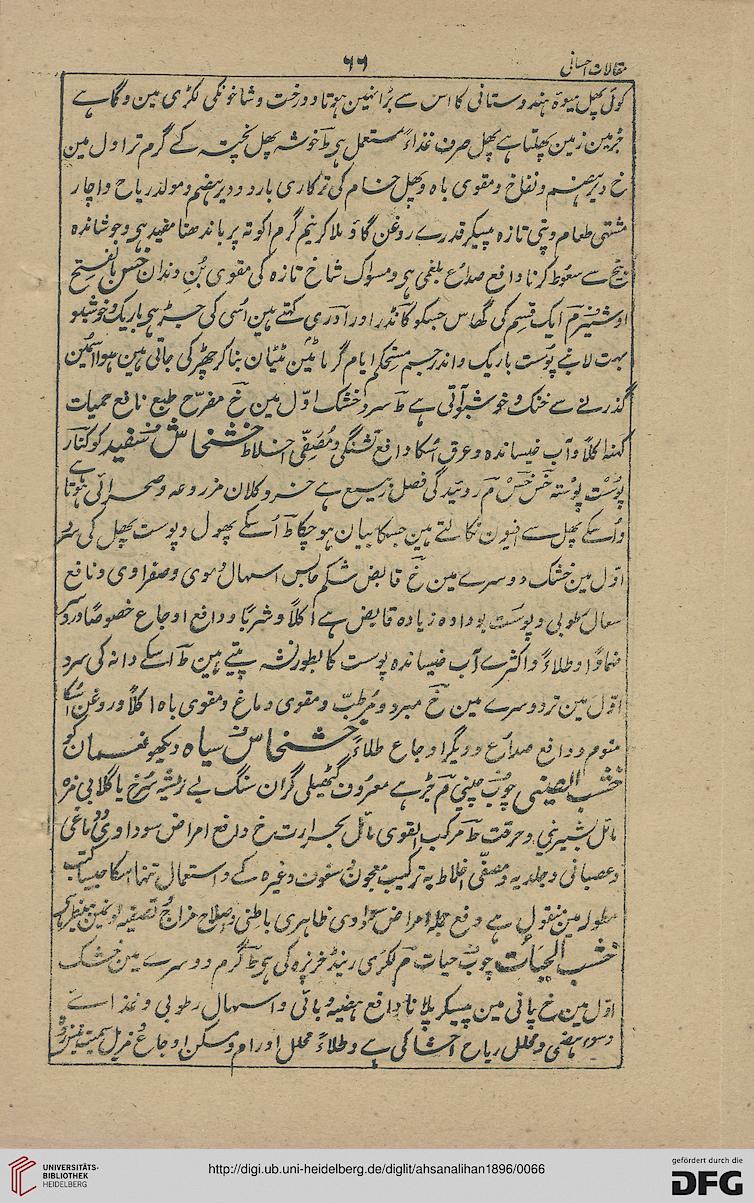 ٦٦
مقالات احسانی
کوئی پھل میوہ ہندوستانی کا اس سے بڑا نہین ہوتا و درخت و شاخونکی لکڑی مین و گاہے
جڑمین زمین پھلتا ہے پھل صرف غذاءً مستعمل ہی ط خوشہ پھل پختہ کے گرم تر اول مین
خ دیرہضم و نفاخ و مقوی باہ و پھل خام کی ترکاری بارد و دیرہضم و مولد ریاح و اچار
مشتہی طعام و پتی تازہ پیسکر قدرے روغن گاؤ ملاکر نیم گرم اکوتہ پر باندھنا مفید ہی و جوشاندہ
بیخ سے سعوط کرنا دافع صداع بلغمی ہی و مسواک شاخ تازہ کی مقوی بُن دندان خس بالفتح
ایک قسم کی گھاس جسکو گانڈر اور کہتے ہین اُسی کی جڑ ہی باریک و خوشبو
بہت لانبے پوست باریک و اندر جسم مستحکم ایام گرما مین ٹٹیان بناکر چھڑکی جاتی ہین ہوا
گذرنے سے خنک و خوشبو آتی ہے ط سرد خشک اوّل مین خ مفرّح طبع نافع حمیات
کہنہ اکلاً و آب خیساندہ و عرق اسکا دافع تشنگی و مُصَفّی اخلاط خشخاش سفید کوکنار
پوست م روئیدگی فصل ربیع ہے خرد و کلان مزروعہ و صحرائی ہوتا ہے
و اُسکے پھل سے افیون نکالتے ہین جسکا بیان ہوچکا ط اُسکے پھول و پوست پھل کی سرد
اوّل مین خشک دوسرے مین خ قابض شکم حابس اسہال دموی و صفراوی و نافع
سعال رطوبی و پوست زیادہ قابض ہے اکلاً و شرباً و دافع اوجاع خصوصاً دردسر
ضماداً و طلاءً و اکثرے آب خیساندہ پوست کا بطور نشہ پیتے ہین ط اسکے دانہ کی سرد
اوّل مین تر دوسرے مین خ مبرد و مرطب و مقوی دماغ و مقوی باہ اکلاً و روغن اُسکا
منوم و دافع صداع و دیگر اوجاع طلاءً خشخاش سیاہ دیکھو نعمان کو
خشب الصینی چوب چینی م جڑ ہے معروف گٹھیلی گران سنگ بے ریشہ سُرخ یا گلابی مزہ
مائل بشیرینی و حرقت ط مرکب القوی مائل بحرارت خ دافع امراض سوداوی و دماغی
و عصبانی و جلدیہ و مصفّی اخلاط بہ ترکیب معجون و سفوف وغیرہ کے و استعمال تنہا اسکا جیسا کتب
مطولہ مین منقول ہے دفع جملہ امراض سوداوی ظاہری باطنی و اصلاح مزاج و تصفیہ مین بینظیر ہے
خشب الحیات چوب حیات م لکڑی کی ہی ط گرم دوسرے مین خشک
اوّل مین خ پانی مین پیسکر پلانا دافع ہیضہ وبائی و اسہال رطوبی و غذائے
و سوء ہضمی و محلل ریاح احشا کی ہے و طلاءً محلل اورام و مسکن اوجاع و مزیل سمیت
UNIVERSITÄTS-
BIBLIOTHEK
HEIDELBERG
http://digi.ub.uni-heidelberg.de/diglit/ahsanalihan1896/0066
gefördert durch die
DFG